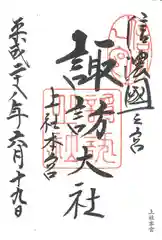 信濃國一之宮
諏訪大社
上社本宮
平成二十八年六月十九日
上社本宮